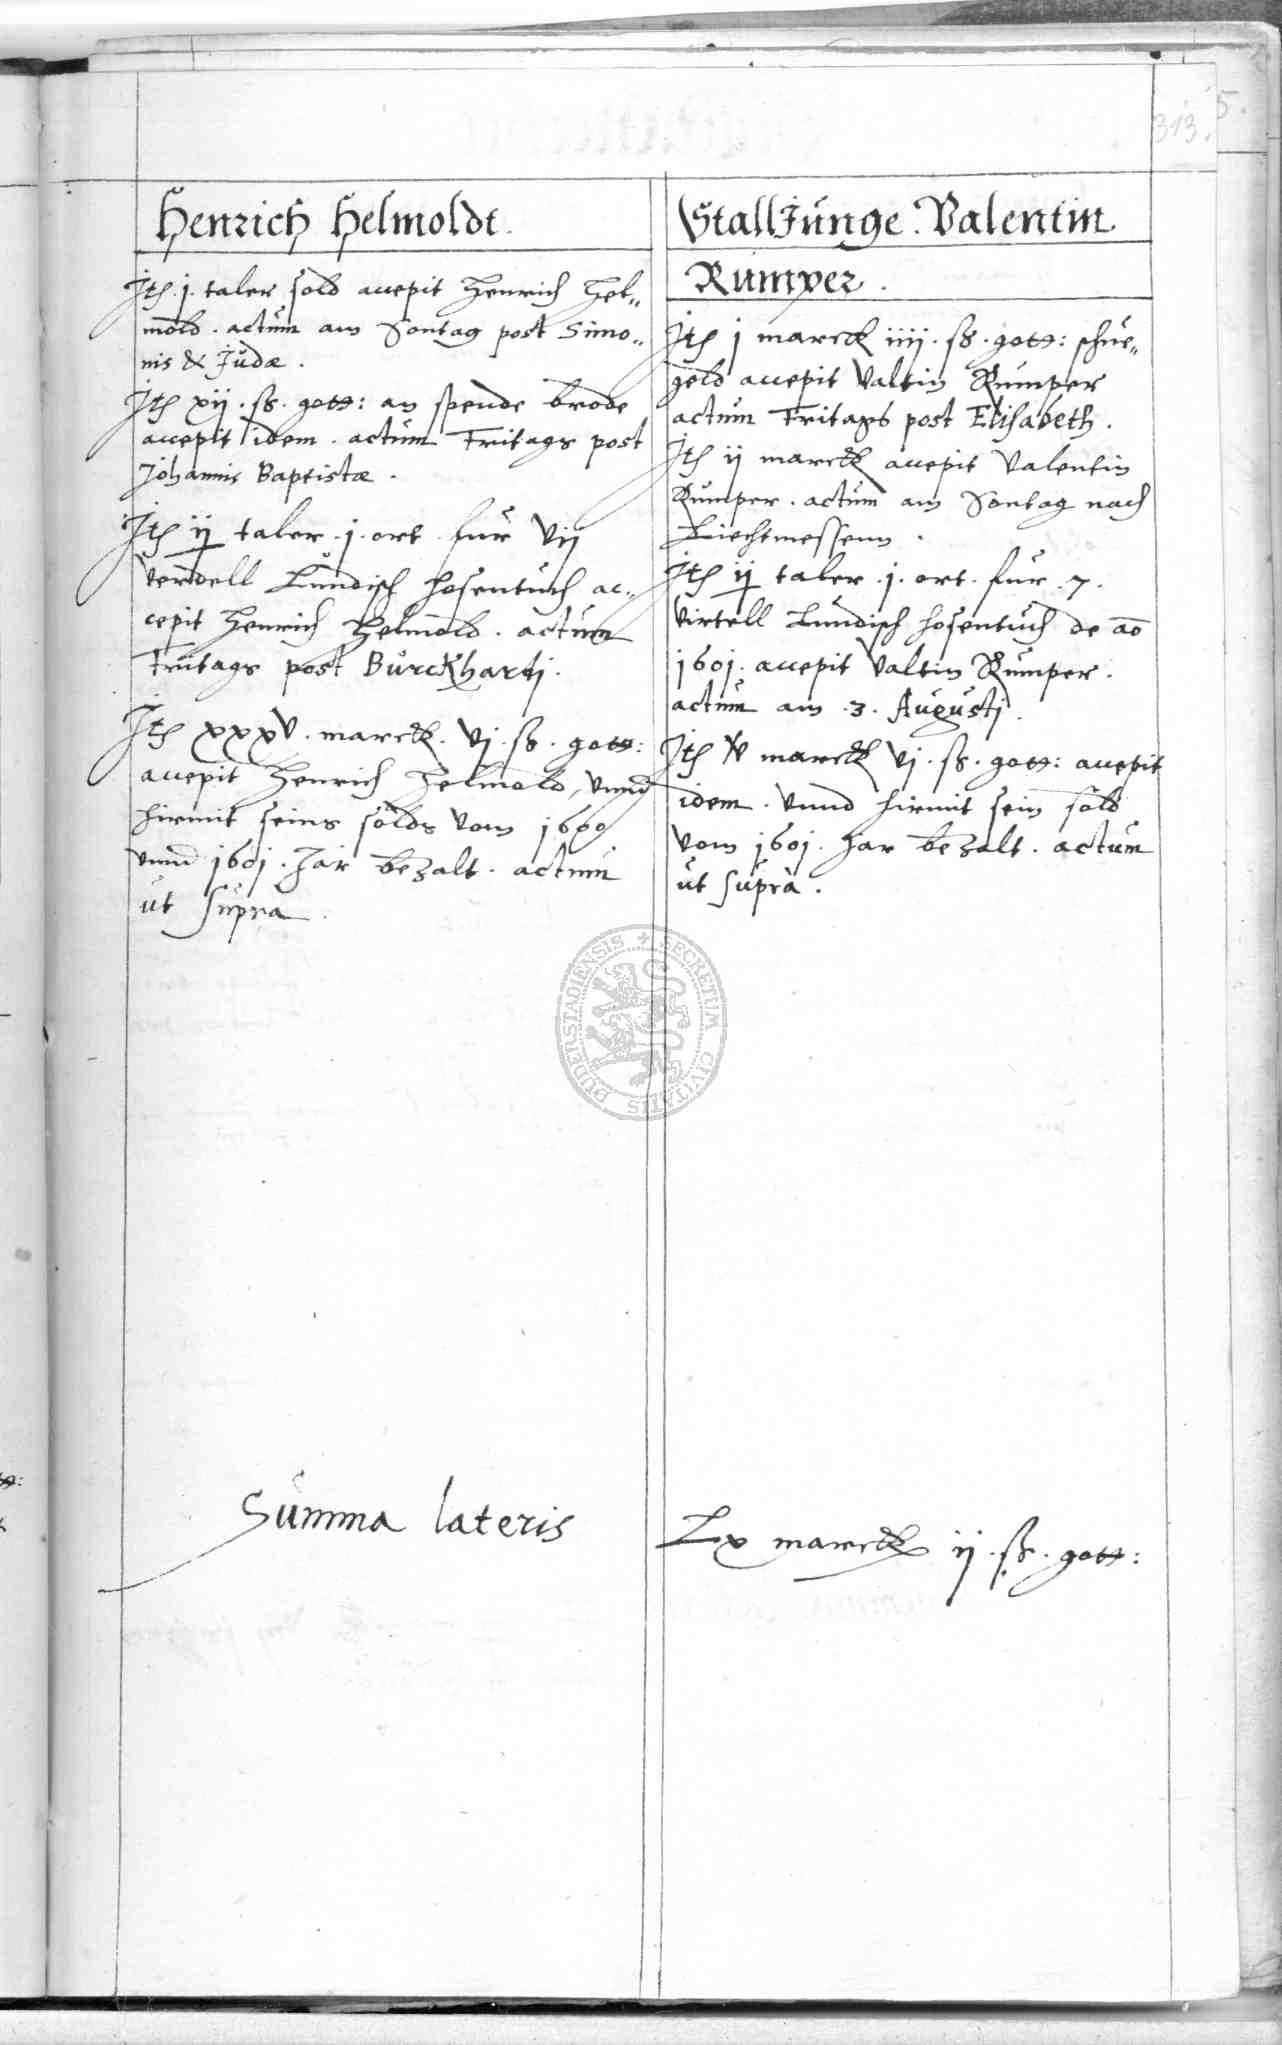 313.
5.
Henrich Helmoldt.
Itß .j. taler sold accepit Henrich Hel„
mold . actum am Sontag post Simo„
nis & Judæ .
Itß xij . ß . gott: an spende brode
accepit idem . actum Fritags post
Johannis Baptistæ .
Itß ij taler .j. ort . fur vij
verdell Lundisch hosentuch ac„
cepit Henrich Helmold . actum
Fritags post Burckharti .
Itß xxxv . marck . vj . ß . gott:
accepit Henrich Helmold, vnnd
hirmit seins solds vom 1600
vnnd 1601 . Jar bezalt . actum
ut supra .
StallJunge . Valentin
Rumper .
Itß j marck iiij . ß . gott: schue„
geld accepit Valtin Rumper
actum Fritags post Elisabeth .
Itß ij marck accepit Valentin
Rumper . actum am Sontag nach
Liechtmessenn .
Itß ij taler .j. ort . fur . 7 .
virtell Lundisch hosentuch de ao
1601 . accepit Valtin Rumper .
actum am . 3 . Augusti .
Itß marck vj . ß . gott: accepit
idem . vnnd hirmit sein sold
vom 1601 . Jar bezalt . actum
ut suprà .
SECRETUM CIVITATIS DUDERSTADIENSIS
Summa lateris
Lx marck ij . ß . gott: